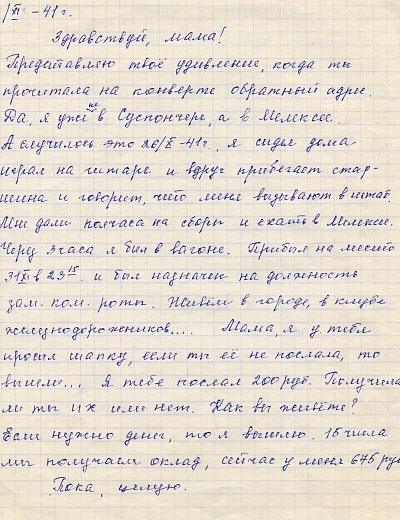 1/XI -41 г.
Здравствуй, мама!
Представляю твоё удивление, когда ты
прочитала на конверте обратный адрес.
Да, я уже не в Суслонгере, а в Мелекссе.
А случилось это 26/X -41г, я сидел дома
играл на гитаре и вдруг прибегает стар-
шина и говорит, что меня вызывают в штаб.
Мне дали полчаса на сборы и ехать в Мелексс.
Через 3 часа я был в вагоне. Прибыл на место
31/X в 23 15 и был назначен на должность
зам. ком. роты. Живём в городе, в клубе
железнодорожников.... Мама, я у тебя
просил шапку, если ты её не послала, то
вышли... Я тебе послал 200 руб. Получила
ли ты их или нет. Как вы живёте?
Если нужно денег, то я вышлю. 15 числа
мы получаем оклад, сейчас у меня 675 руб
Пока, целую.